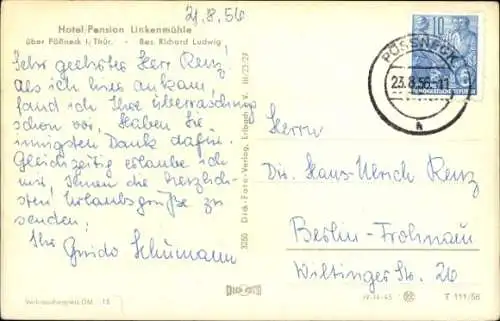 21.8.56
Hotel-Pension Linkenmühle
über Pößneck i. Thür. - Bes. Richard Ludwig
Sehr geehrter Herr Renz!
Als ich hier ankam,
fand ich Ihre Überraschung
schon vor. Haben Sie
innigsten Dank dafür.
Gleichzeitig erlaube ich
mir, Ihnen die herzlich-
sten Urlaubsgrüße zu
senden.
Ihr Guido Schümann
Verbraucherpreis DM. 15
3250 Dick-Foto-Verlag, Erlbach i. V. III/23/29
DICK FOTO
10
DEUTSCHE DEMOKRATISCHE REPUBLIK
PÖSSNECK
23.8.56-11
h
Herrn
Dir. Hans-Ulrich Renz
Berlin-Frohnau
Wiltinger Str. 26
IV-14-45
T 111/56